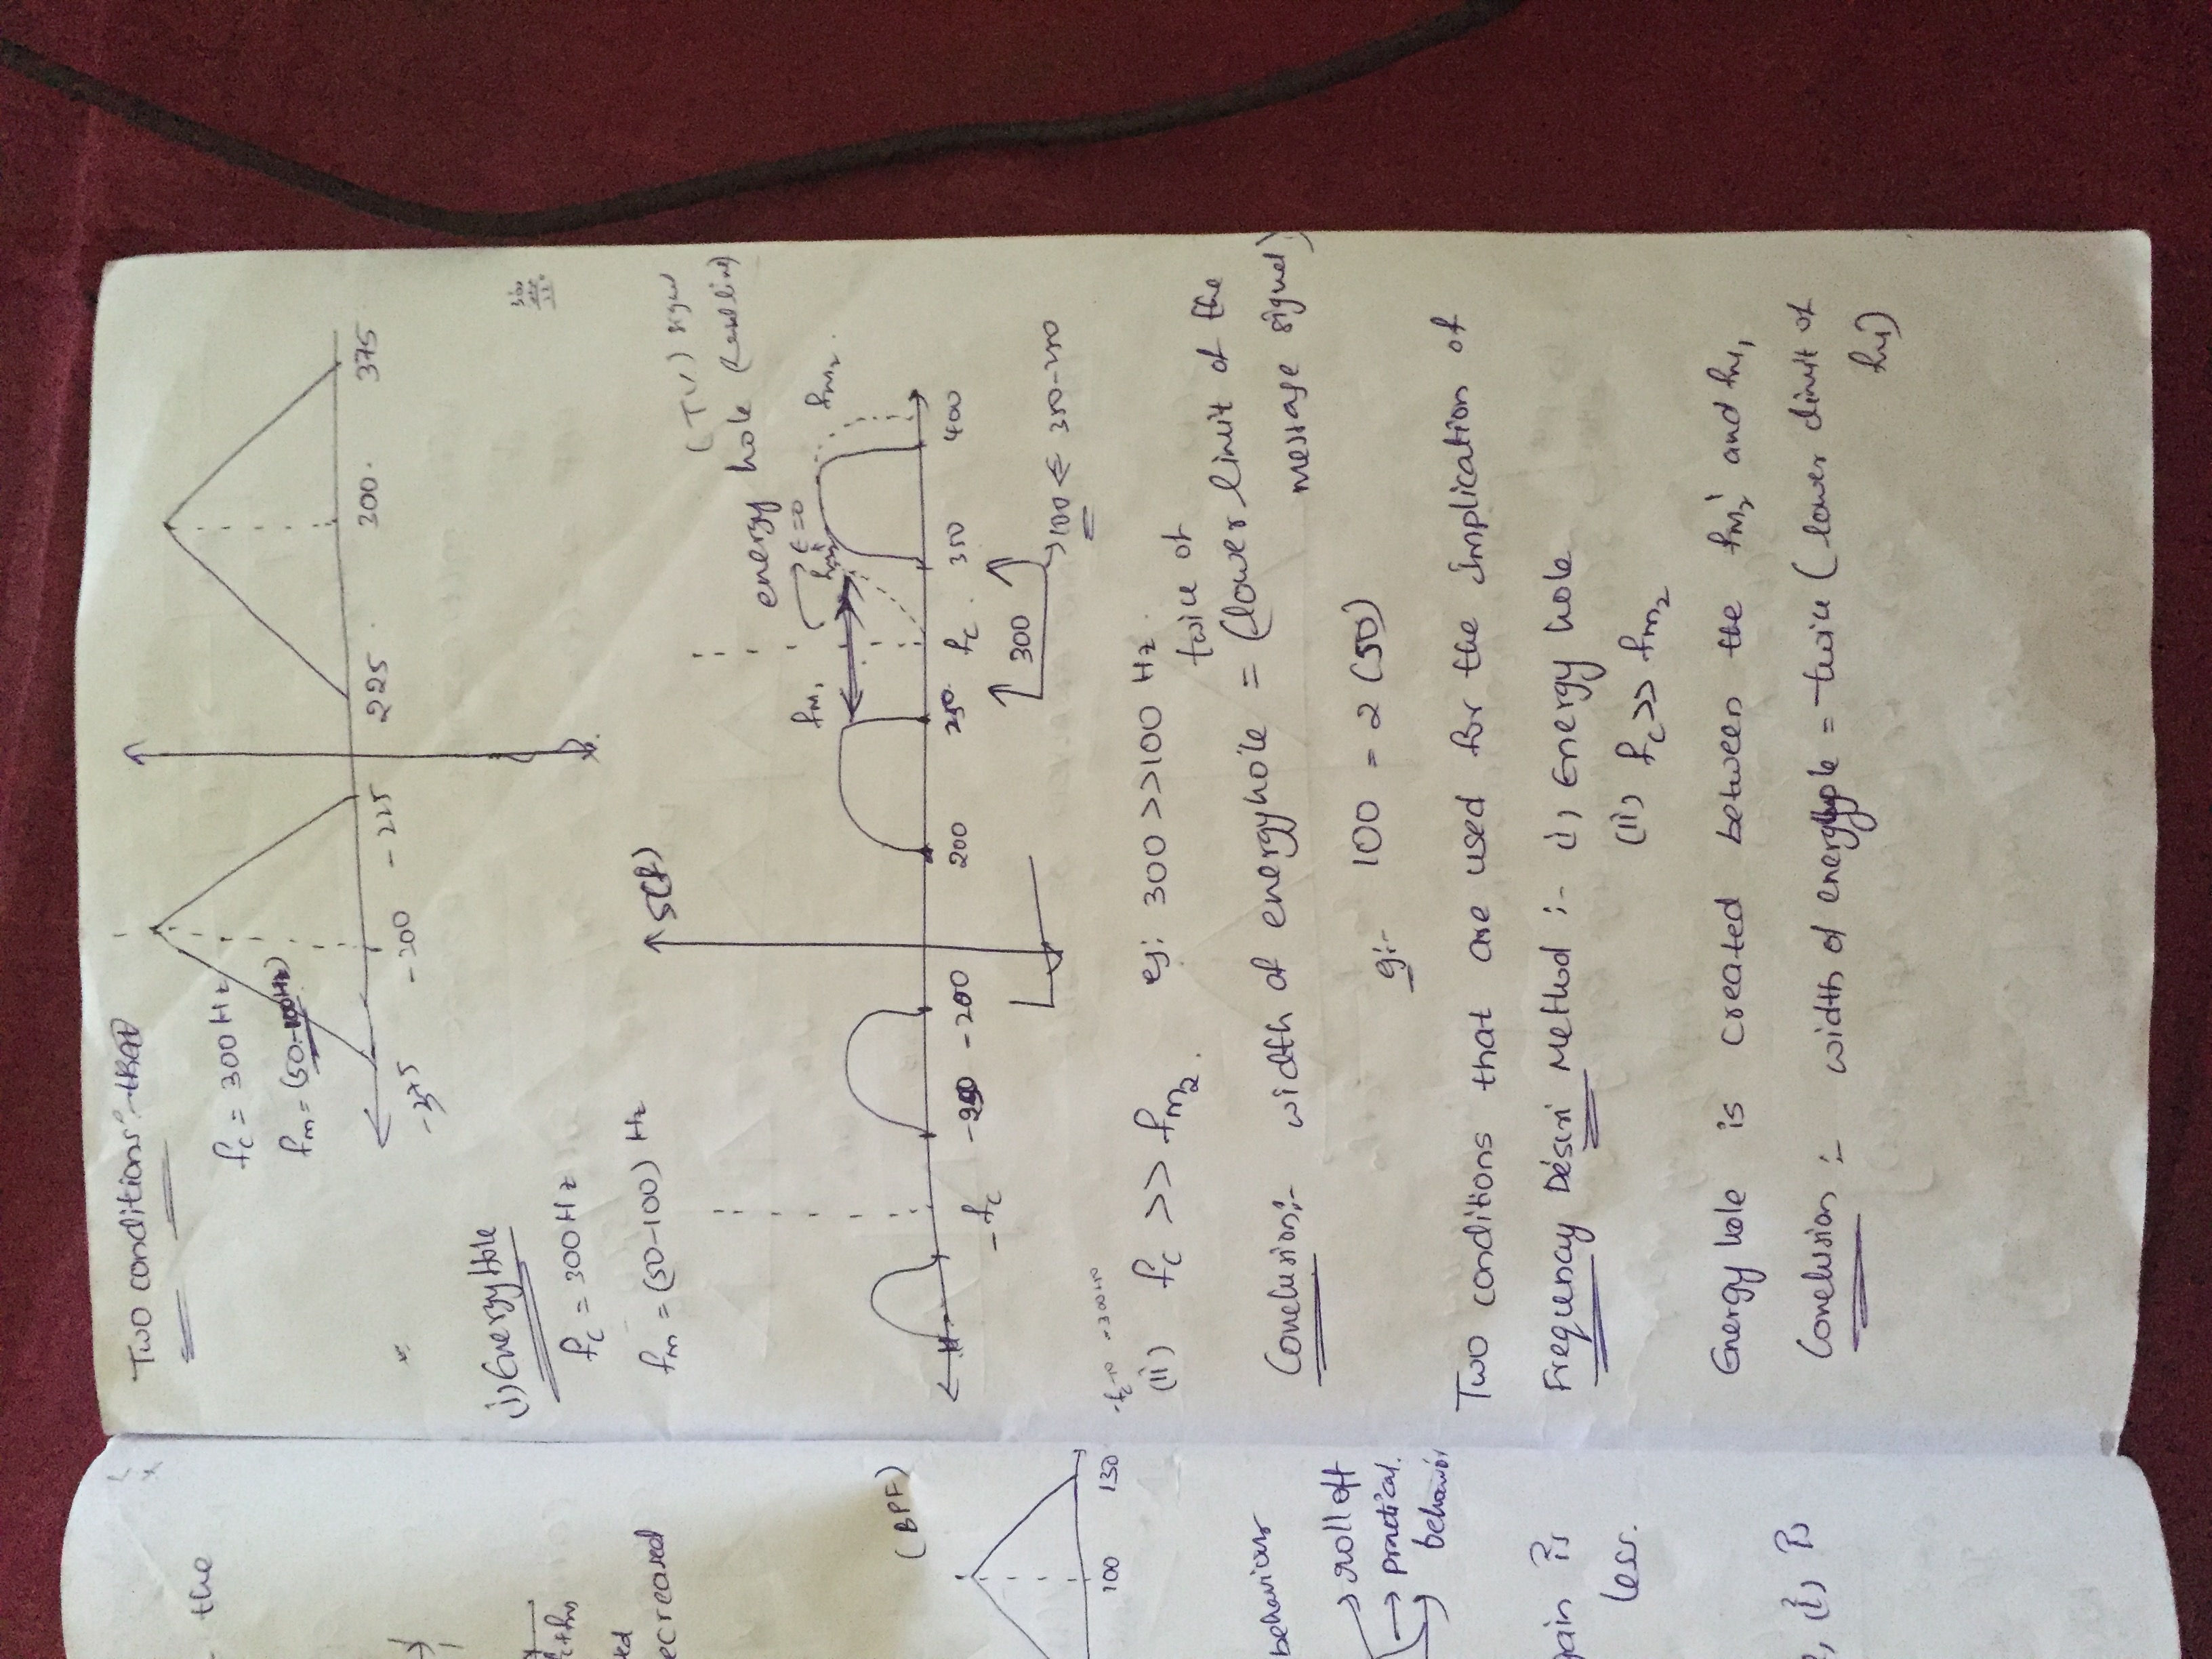 the
c+fm
ecreased
(BPF)
100 130
behaviour
→ roll off
→ practical.
behavior
gain is
less.
Two conditions :- that
fc = 300 Hz
fm = (50-100Hz)
-375 -300 -225 225 300 375
(i) Energy Hole
fc = 300 Hz
fm = (50-100) Hz
S(f)
(TV) signal
energy hole
fm1 fm2
-fc -250 -200 200 250 fc 350 400
300
→ 100 ⇐ 350-250
(ii) fc >> fm2. eg: 300 >> 100 Hz.
twice of
Conclusion:- width of energyhole = (lower limit of the
message signal)
eg:- 100 = 2 (50)
Two conditions that are used for the implication of
Frequency Descri Method :- (i) Energy hole
(ii) fc >> fm2
Energy hole is created between the fm2' and fm1
Conclusion :- width of energyhole = twice (lower limit of
fm)